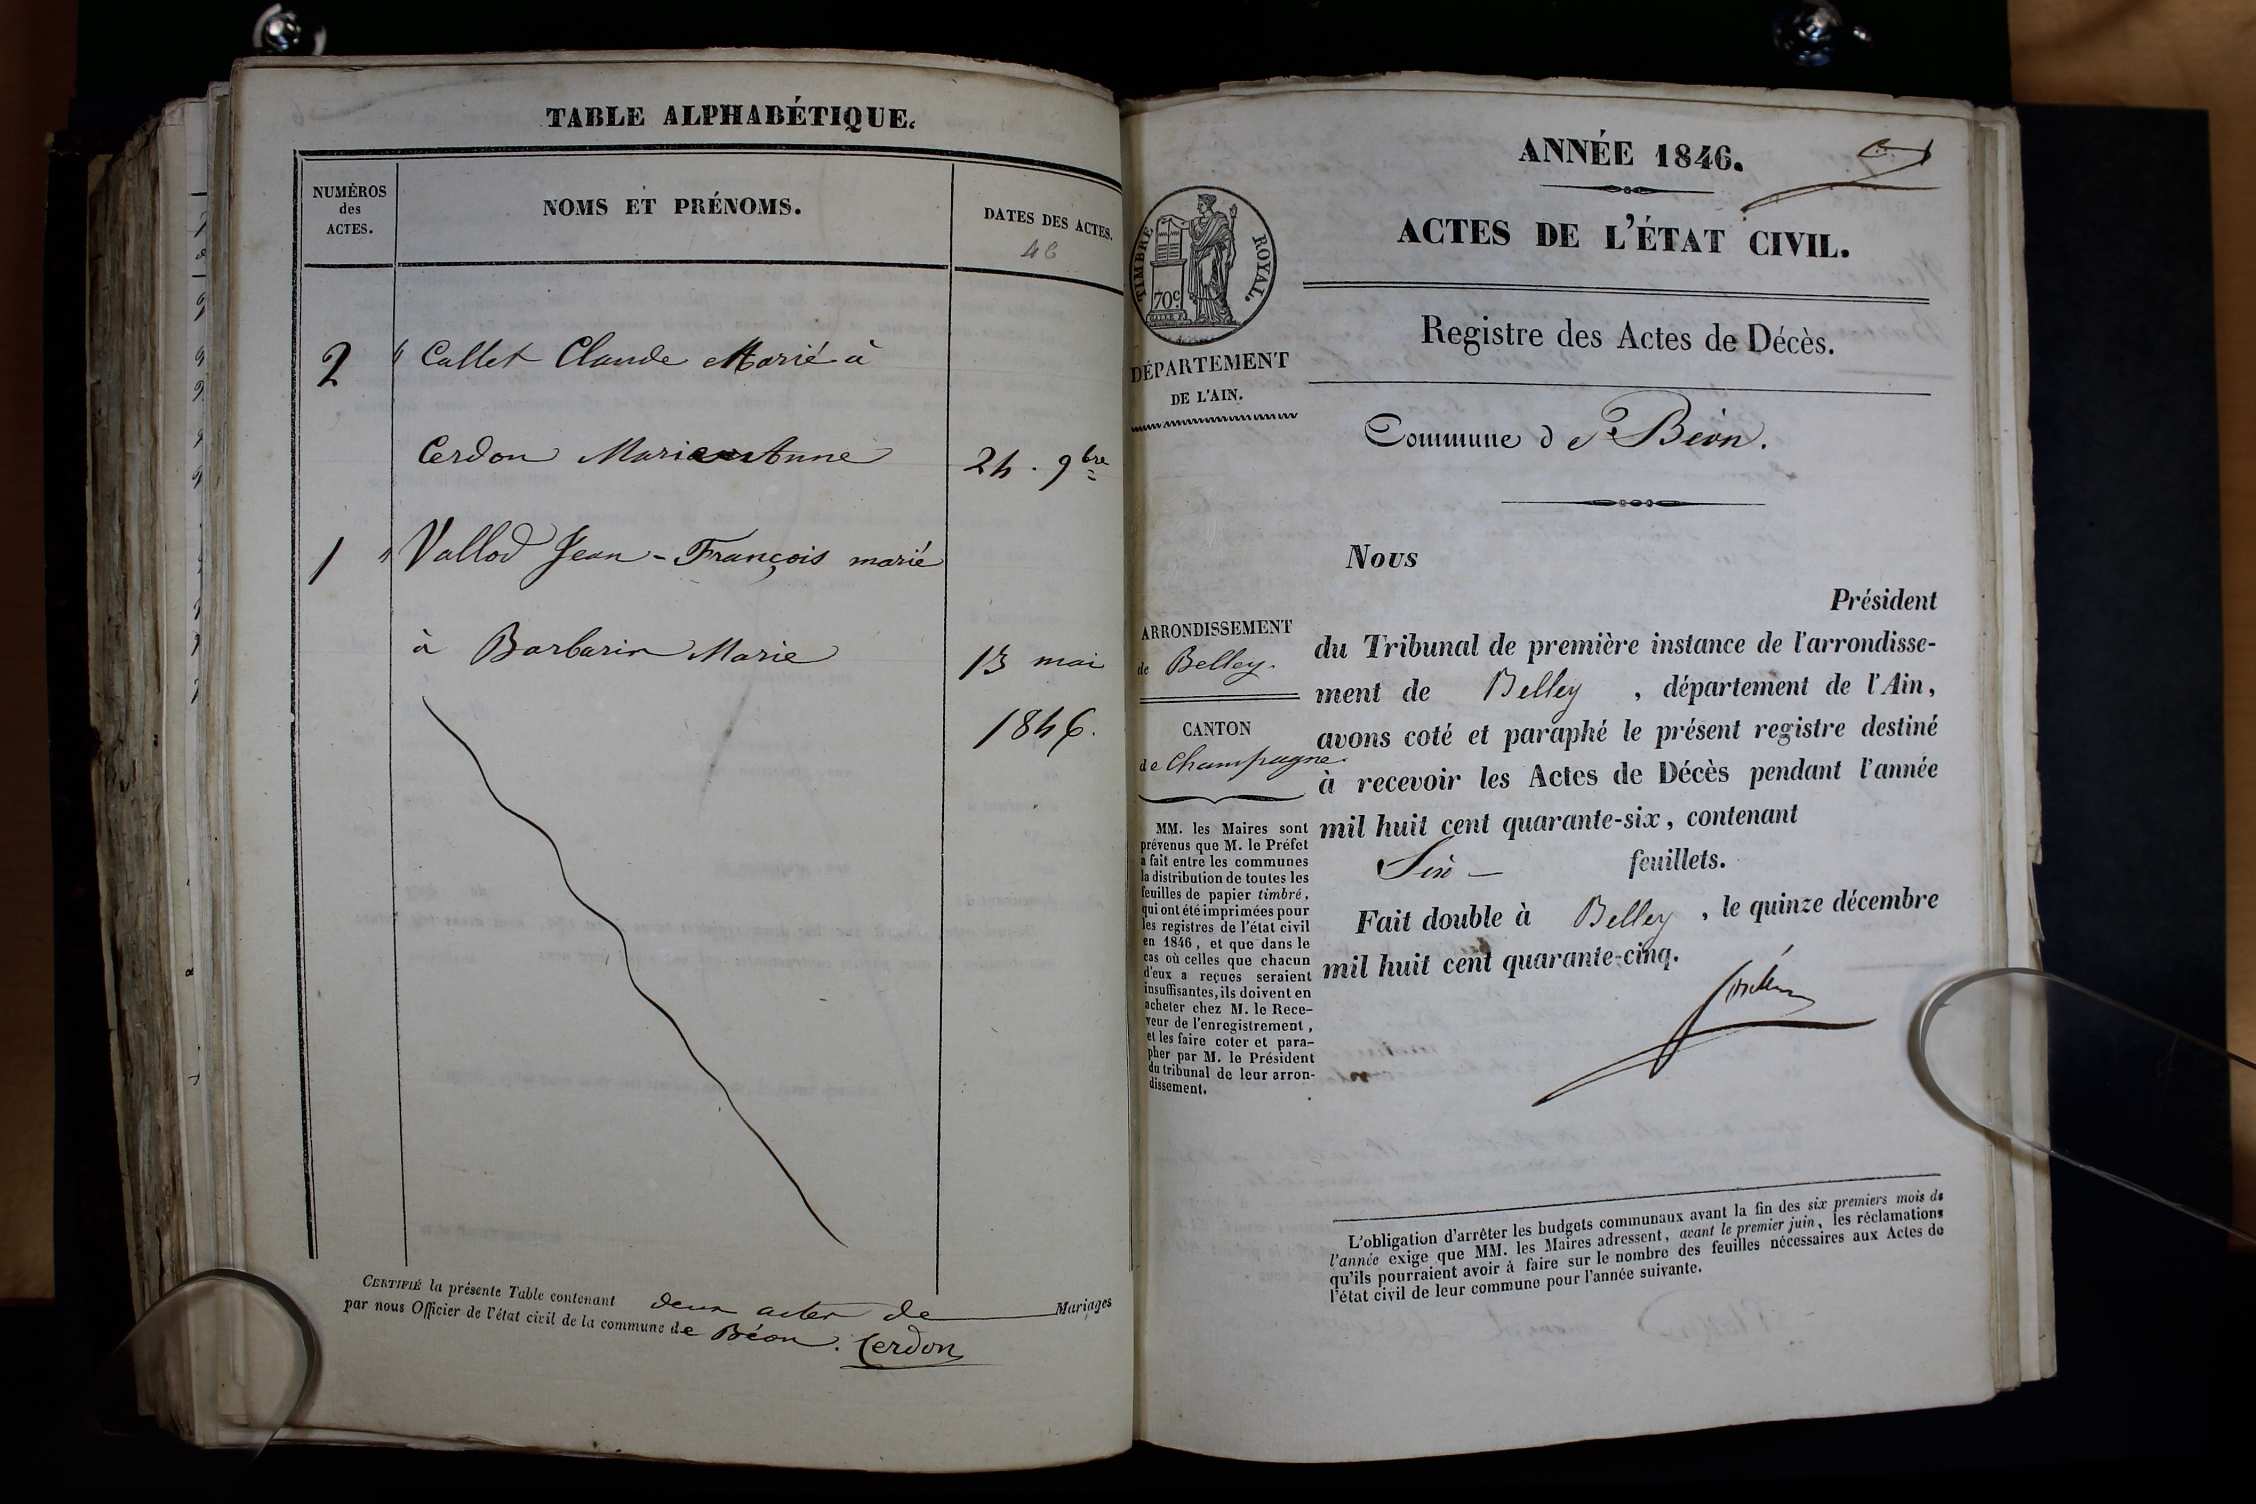 TABLE ALPHABÉTIQUE.
NUMÉROS
des
ACTES.
NOMS ET PRÉNOMS.
DATES DES ACTES.
46
2 " Callet Claude Marié à
Cerdon Marie Anne 24. 9bre
1 " Vallod Jean-François marié
à Barbarin Marie 13 mai
1846.
CERTIFIÉ la présente Table contenant deux actes de Mariages
par nous Officier de l'état civil de la commune de Béon. Cerdon
ANNÉE 1846.
ACTES DE L'ÉTAT CIVIL.
TIMBRE ROYAL.
70c
Registre des Actes de Décès.
DÉPARTEMENT
DE L'AIN.
Commune de Béon.
ARRONDISSEMENT
de Belley.
CANTON
de Champagne.
MM. les Maires sont
prévenus que M. le Préfet
a fait entre les communes
la distribution de toutes les
feuilles de papier timbré,
qui ont été imprimées pour
les registres de l'état civil
en 1846, et que dans le
cas où celles que chacun
d'eux a reçues seraient
insuffisantes, ils doivent en
acheter chez M. le Rece-
veur de l'enregistrement,
et les faire coter et para-
pher par M. le Président
du tribunal de leur arron-
dissement.
Nous
Président
du Tribunal de première instance de l'arrondisse-
ment de Belley, département de l'Ain,
avons coté et paraphé le présent registre destiné
à recevoir les Actes de Décès pendant l'année
mil huit cent quarante-six, contenant
Six feuillets.
Fait double à Belley, le quinze décembre
mil huit cent quarante-cinq.
L'obligation d'arrêter les budgets communaux avant la fin des six premiers mois de
l'année exige que MM. les Maires adressent, avant le premier juin, les réclamations
qu'ils pourraient avoir à faire sur le nombre des feuilles nécessaires aux Actes de
l'état civil de leur commune pour l'année suivante.